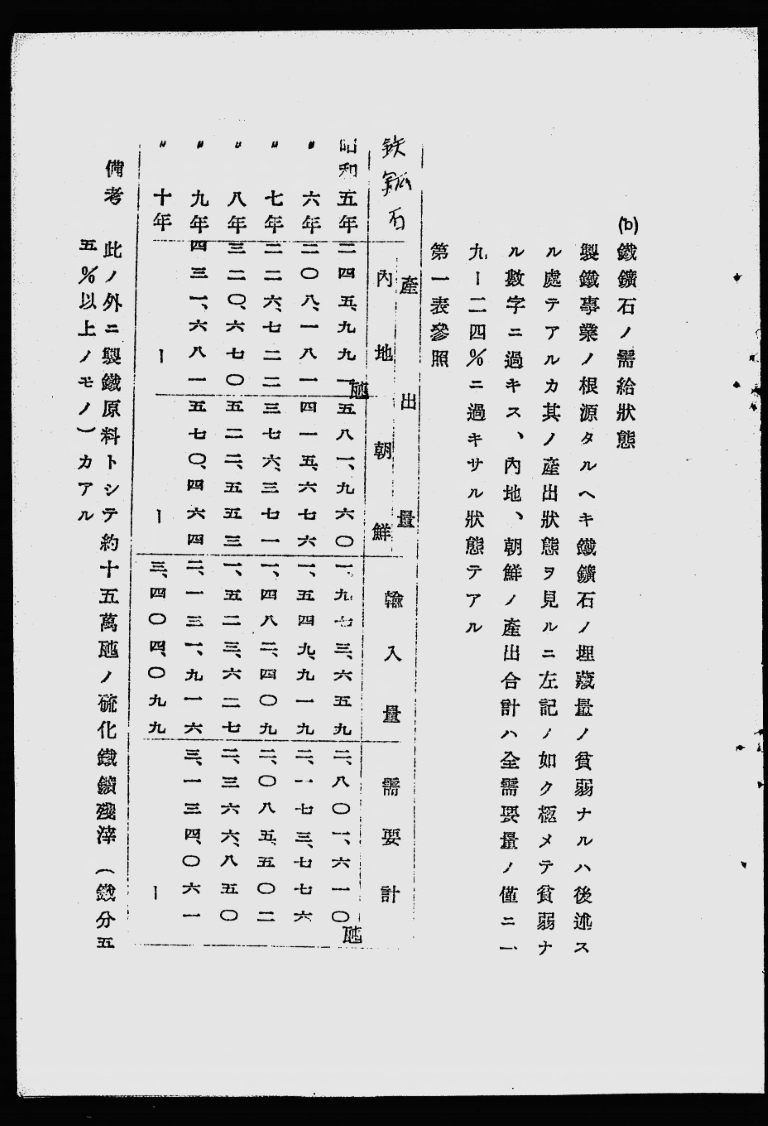 (b) 鐵鑛石ノ需給狀態
製鐵事業ノ根源タルヘキ鐵鑛石ノ埋藏量ノ貧弱ナルハ後述ス
ル處テアルカ其ノ產出狀態ヲ見ルニ左記ノ如ク極メテ貧弱ナ
ル數字ニ過キス、內地、朝鮮ノ產出合計ハ全需要量ノ僅ニ一
九ー二四%ニ過キサル狀態テアル
第一表參照
鉄鉱石
產出量
內地 朝鮮 輸入量 需要計
昭和五年 二四五、九九一瓲 五八一、九六〇 一、九七三、六五九 二、八〇一、六一〇瓲
〃 六年 二〇八、一八一 四一五、六七六 一、五四九、九一九 二、一七三、七七六
〃 七年 二二六、七二二 三七六、三七一 一、四八二、四〇九 二、〇八五、五〇二
〃 八年 三二〇、六七〇 五二二、五五三 一、五二三、六二七 二、三六六、八五〇
〃 九年 四三一、六八一 五七〇、四六四 二、一三一、九一六 三、一三四、〇六一
〃 十年 ー ー 三、四〇四、〇九九 ー
備考 此ノ外ニ製鐵原料トシテ約十五萬瓲ノ硫化鐵鑛殘滓(鐵分五
五%以上ノモノ)カアル